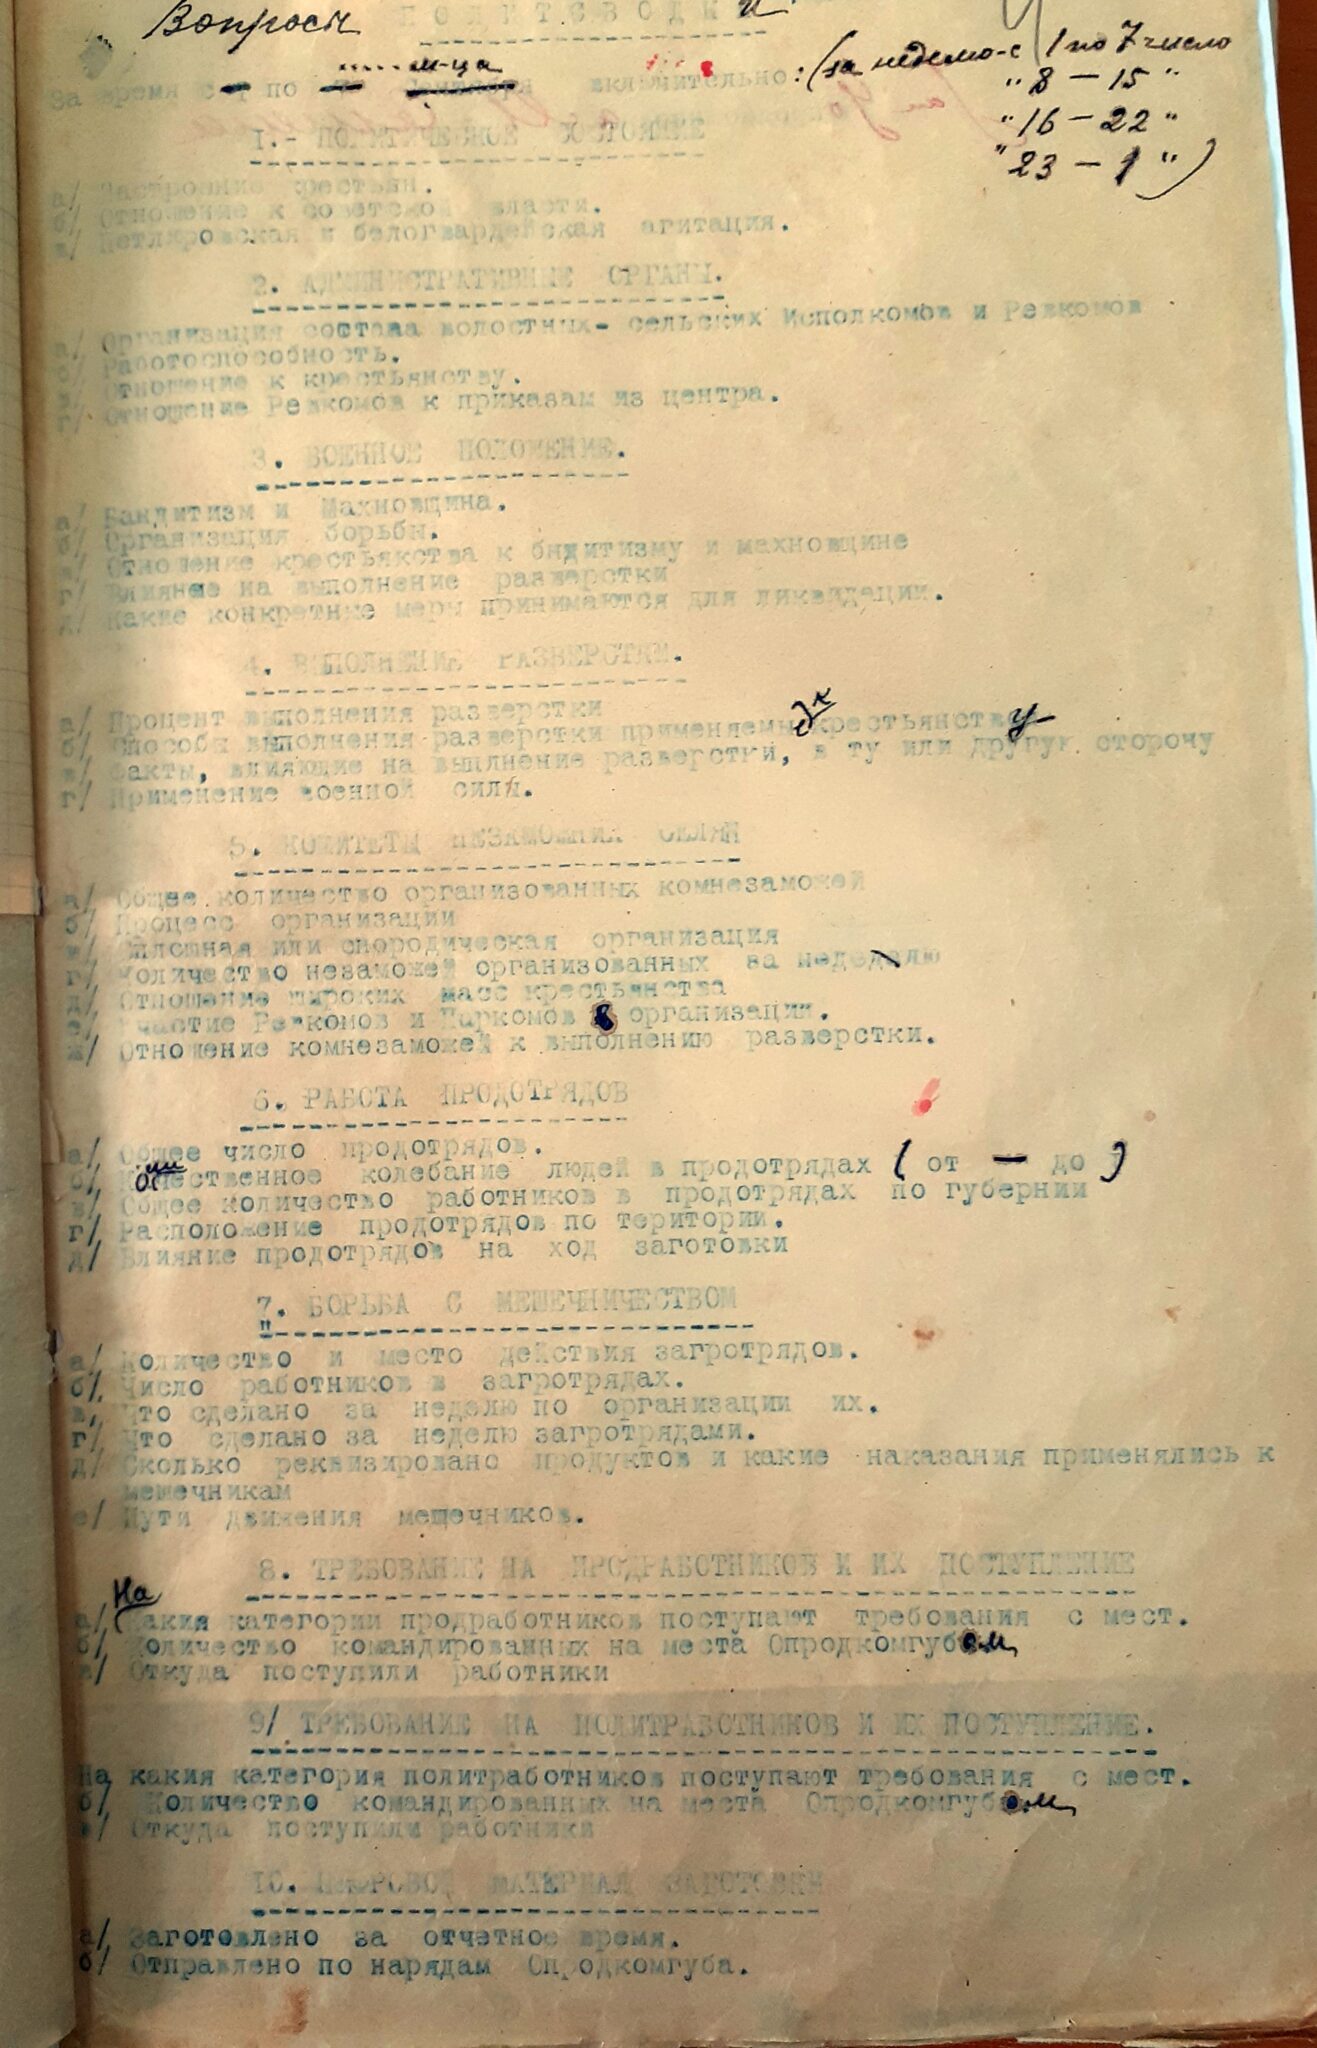 Вопросы ПОЛИТСВОДКИ
(за неделю-с 1 по 7 число
" 8 - 15 "
" 16 - 22 "
" 23 - 1 ")
..... м-ца
За время с по включительно:
I.- ПОЛИТИЧЕСКОЕ СОСТОЯНИЕ
а/ Настроение крестьян.
б/ Отношение к советской власти.
в/ Петлюровская и белогвардейская агитация.
2. АДМИНИСТРАТИВНЫЕ ОРГАНЫ.
а/ Организация состава волостных- сельских Исполкомов и Ревкомов
б/ Работоспособность.
в/ Отношение к крестьянству.
г/ Отношение Ревкомов к приказам из центра.
3. ВОЕННОЕ ПОЛОЖЕНИЕ.
а/ Бандитизм и Махновщина.
б/ Организация борьбы.
в/ Отношение крестьякства к бндитизму и махновщине
г/ Влияние на выполнение разверстки
д/ Какие конкретные меры принимаются для ликвидации.
4. ВЫПОЛНЕНИЕ РАЗВЕРСТКИ.
а/ Процент выполнения разверстки
б/ Способы выполнения разверстки применяемы к крестьянству
в/ Факты, влияющие на выплнение разверстки, в ту или другую сторочу
г/ Применение военной силы.
5. КОМИТЕТЫ НЕЗАМОЖНИХ СЕЛЯН
а/ Общее количество организованных комнезаможей
б/ Процесс организации
в/ Сплошная или спородическая организация
г/ Количество незаможей организованных за неделю
д/ Отношение широких масс крестьянства
е/ Участие Ревкомов и Паркомов в организации.
ж/ Отношение комнезаможей к выполнению разверстки.
6. РАБОТА ПРОДОТРЯДОВ
а/ Общее число продотрядов.
б/ Количественное колебание людей в продотрядах ( от — до )
в/ Общее количество работников в продотрядах по губернии
г/ Расположение продотрядов по територии.
д/ Влияние продотрядов на ход заготовки
7. БОРЬБА С МЕШЕЧНИЧЕСТВОМ
а/ Количество и место действия загротрядов.
б/ Число работников в загротрядах.
в/ Что сделано за неделю по организации их.
г/ Что сделано за неделю загротрядами.
д/ Сколько реквизировано продуктов и какие наказания применялись к
мешечникам
е/ Пути движения мещечников.
8. ТРЕБОВАНИЕ НА ПРОДРАБОТНИКОВ И ИХ ПОСТУПЛЕНИЕ
а/ На какия категории продработников поступают требования с мест.
б/ Количество командированных на места Опродкомгубом
в/ Откуда поступили работники
9/ ТРЕБОВАНИЕ НА ПОЛИТРАБОТНИКОВ И ИХ ПОСТУПЛЕНИЕ.
На какия категория политработников поступают требования с мест.
б/ Количество командированных на места Опродкомгубом
в/ Откуда поступили работники
10. ЦИФРОВОЙ МАТЕРИАЛ ЗАГОТОВКИ
а/ Заготовлено за отчетное время.
б/ Отправлено по нарядам Опродкомгуба.